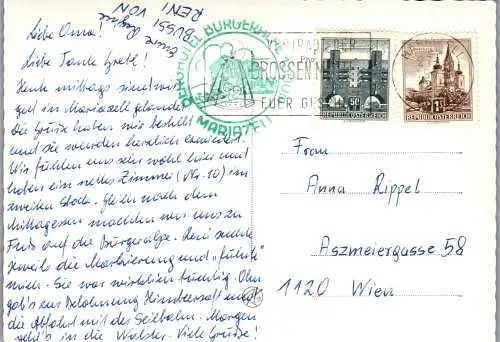 Liebe Oma!
Liebe Tante Gretl!
Heute mittags sind wir
gut in Mariazell gelandet.
Die Grüße haben wir bestellt
und sie werden herzlich erwidert.
Wir fühlen uns sehr wohl hier und
haben ein nettes Zimmer (Nr. 10) im
zweiten Stock. Gleich nach dem
Mittagessen machten wir uns zu
Fuß auf die Bürgeralpe. Reni suchte
jeweils die Markierung und "führte"
mich. Sie war wirklich tüchtig. Oben
gab's zur Belohnung Himbeersaft und
die Abfahrt mit der Seilbahn. Morgen
geht's in die Walster. Viele Grüße!
Eure
BUSSI VON
RENI
BÜRGERALPE
MARIAZELL
GROSSEN
EUER
50 g
REPUBLIK ÖSTERREICH
REPUBLIK ÖSTERREICH
Frau
Anna Rippel
Aszmeiergasse 58
1120 Wien